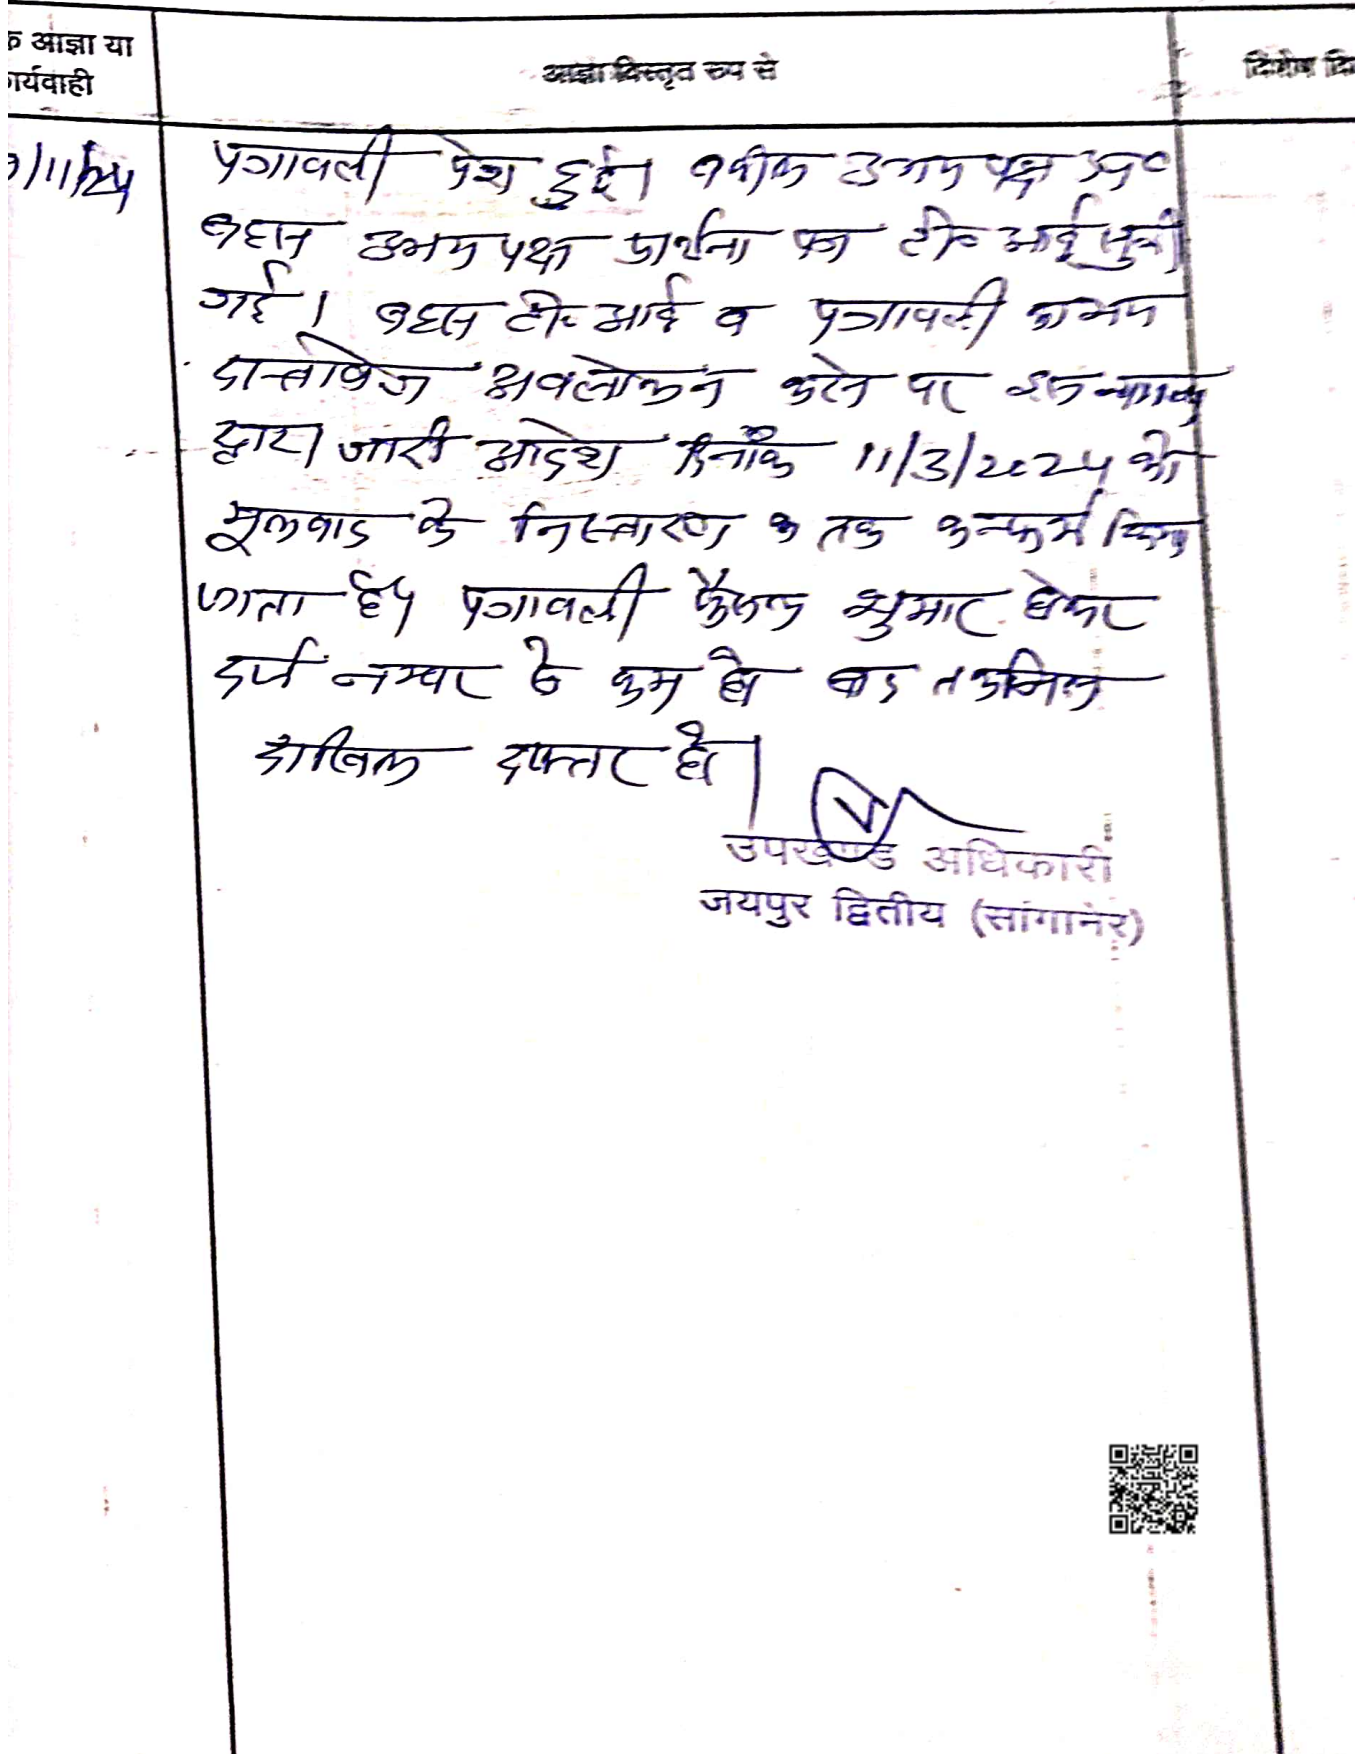 क आज्ञा या
र्यवाही
आज्ञा विस्तृत रुप से
विशेष वि
/11/24
पत्रावली पेश हुई। वकील उभय पक्ष उप०
बहस उभय पक्ष प्रार्थना पत्र टी० आई सुनी
गई। बहस टी० आई व पत्रावली का मय
दास्तावेज अवलोकन करने पर इस न्यायालय
द्वारा जारी आदेश दिनाँक 11/3/2024 को
मूलवाद के निस्तारण के तक कन्फर्म किया
जाता है। पत्रावली फैसल शुमार होकर
दर्ज नम्बर से कम हो बाद तकमिल
दाखिल दफ्तर हो।
उपखण्ड अधिकारी
जयपुर द्वितीय (सांगानेर)